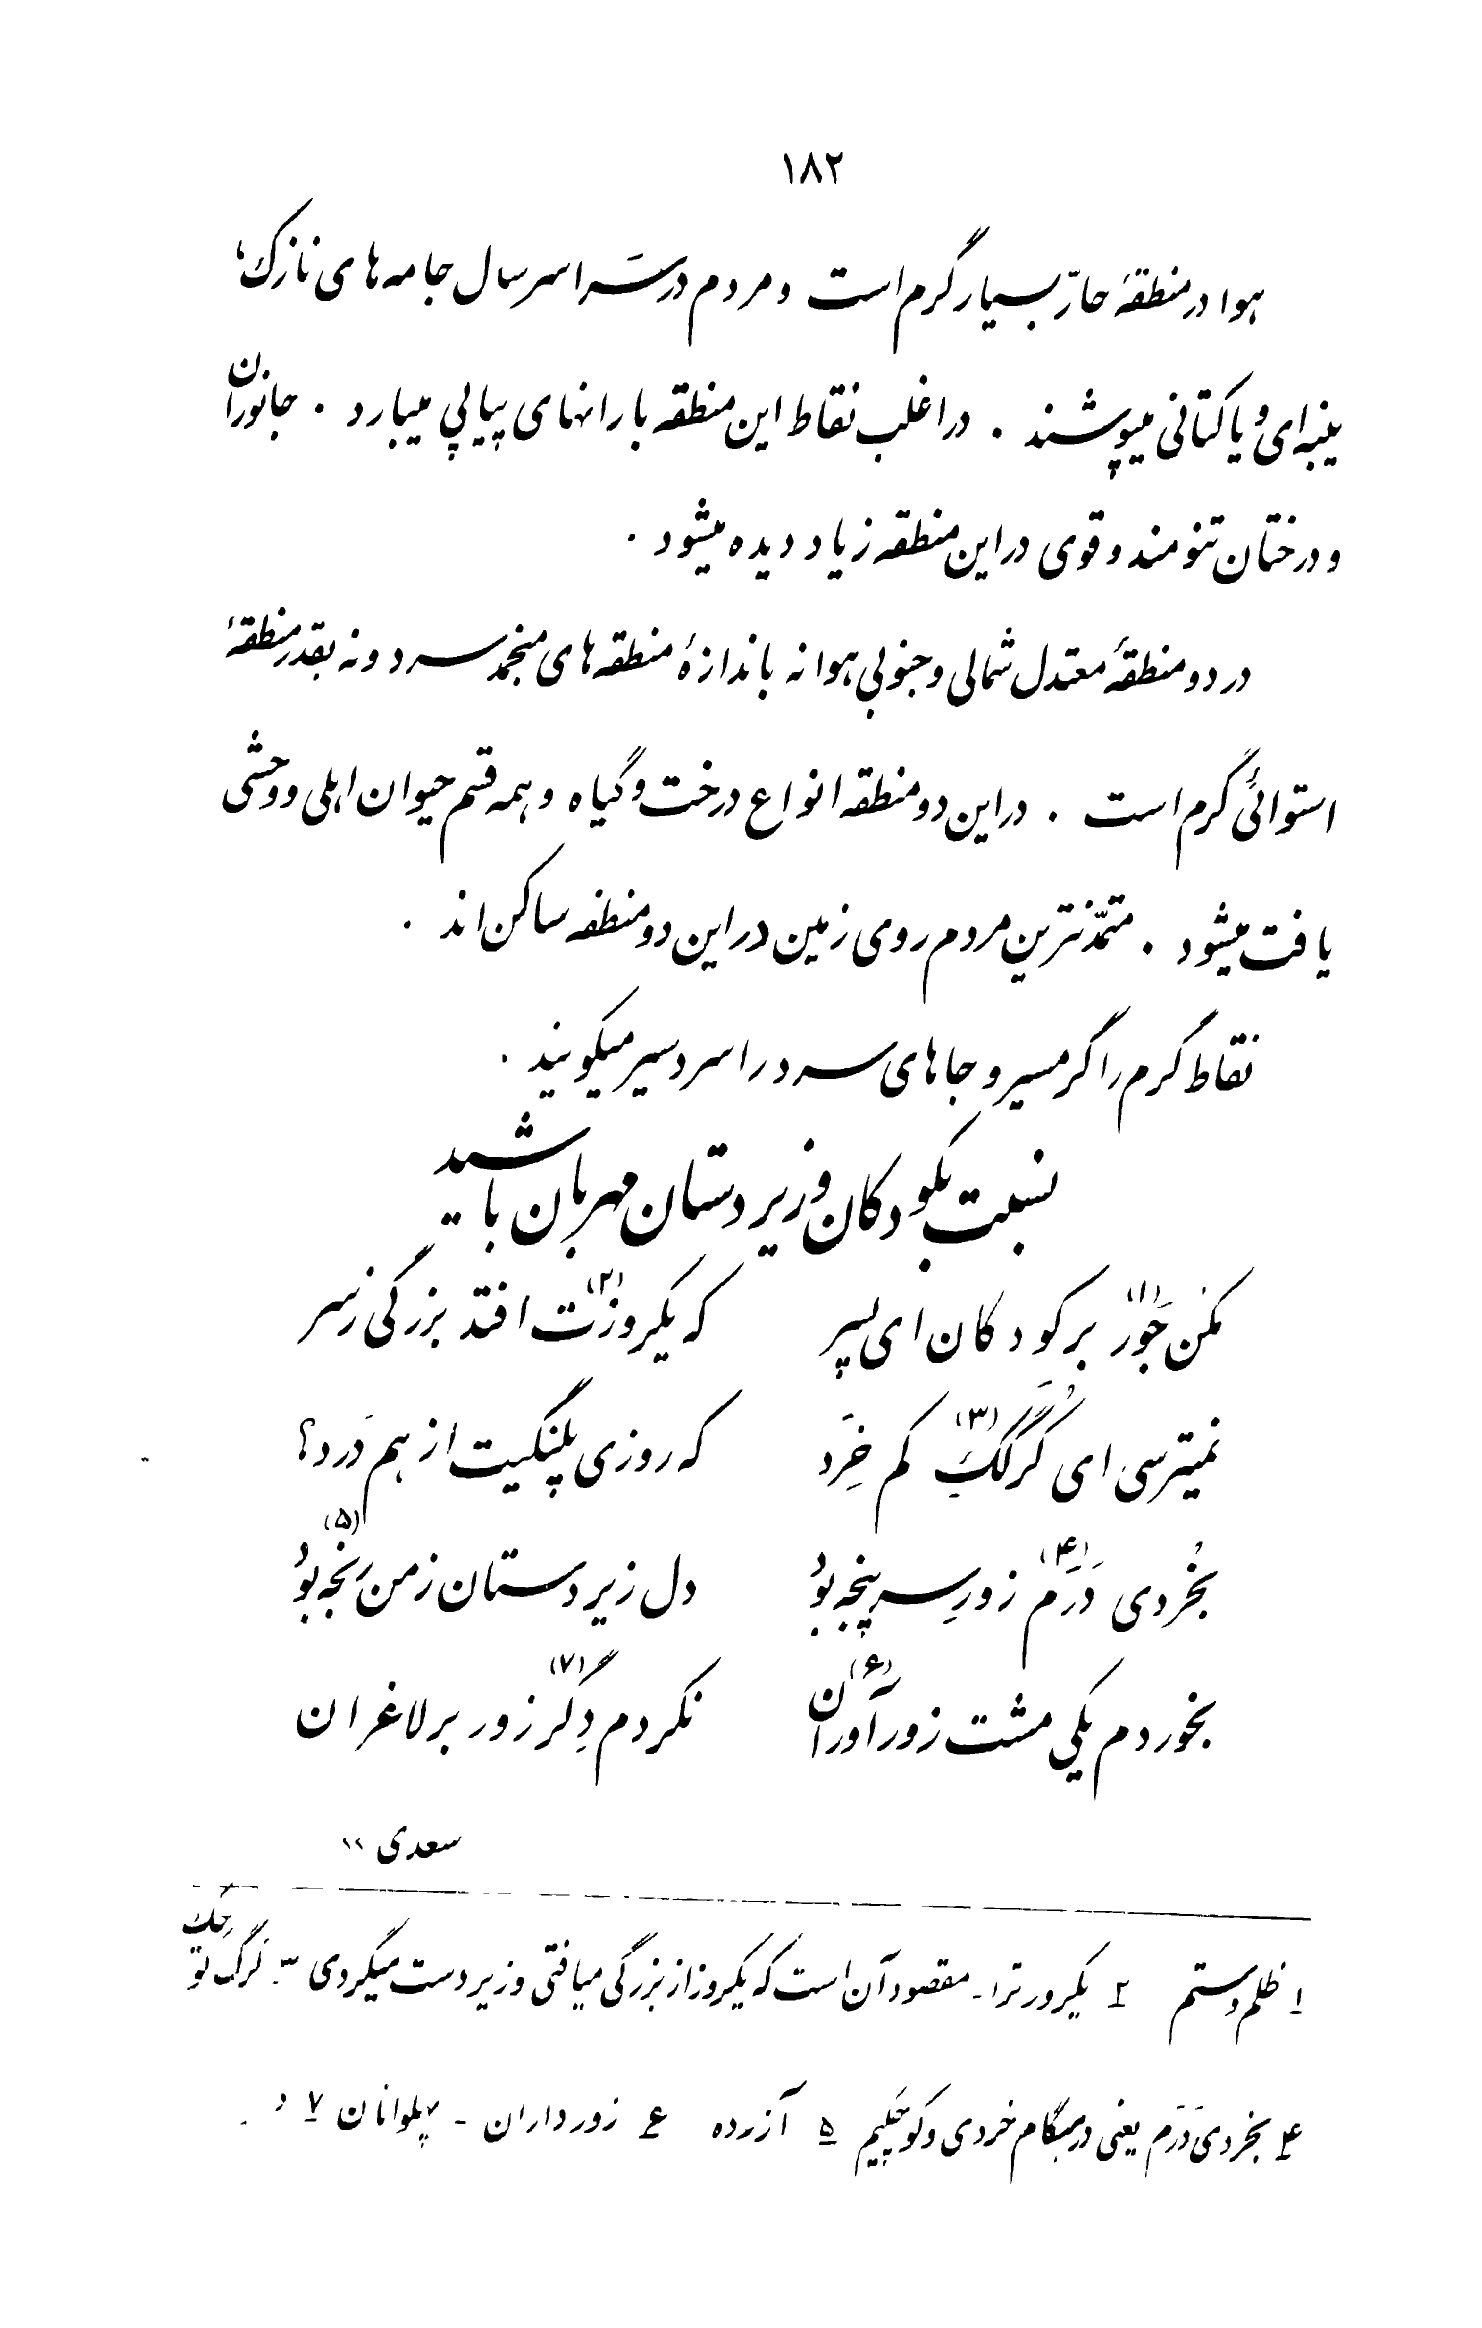 ۱۸۲
هوا در منطقهٔ حارّ بسیار گرم است و مردم در سَراسر سال جامه های نازک،
پنبه ای و یا کتانی میپوشند . در اغلب نقاط این منطقه بارانهای پیاپی میبارد . جانوران
و درختان تنومند و قوی در این منطقه زیاد دیده میشود .
در دو منطقهٔ معتدل شمالی و جنوبی هوا نه باندازهٔ منطقه های منجمد سرد و نه بقدر منطقهٔ
استوائی گرم است . در این دو منطقه انواع درخت و گیاه و همه قسم حیوان اهلی و وحشی
یافت میشود . متمدّنترین مردم روی زمین در این دو منطقه ساکن اند .
نقاط گرم را گرمسیر و جاهای سرد را سردسیر میگویند .
نسبت بکودکان و زیردستان مهربان باشید
مکن جَور (۱) بر کودکان ای پسر که یکروزت (۲) افتد بزرگی ز سر
نمیترسی ای گُرگَکِ (۳) کم خِرَد که روزی پلنگیت از هم دَرد؟
بخُردی دَرَم (۴) زورِ سر پنجه بوُد دل زیردستان ز من رَنجه (۵) بوُد
بخوردم یکی مشت زورآوران (۶) نکردم دِگر (۷) زور بر لاغران
سعدی ،،
۱ ظلم و ستم ۲ یکروز ترا - مقصود آن است که یکروز از بزرگی میافتی و زیر دست میگردی ۳ - گرگ کوچک
۴ بخردی دَرَم یعنی در هنگام خردی و کوچکیم ۵ آزرده ۶ زورداران - پهلوانان ۷